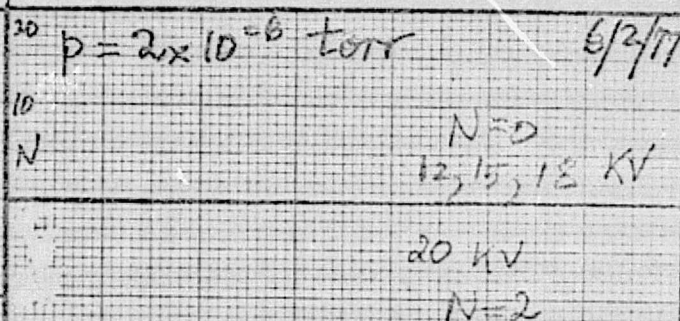 20 p = 2x10⁻⁶ torr 6/2/77
10
N=0
N 12, 15, 18 KV
20 KV
N=2